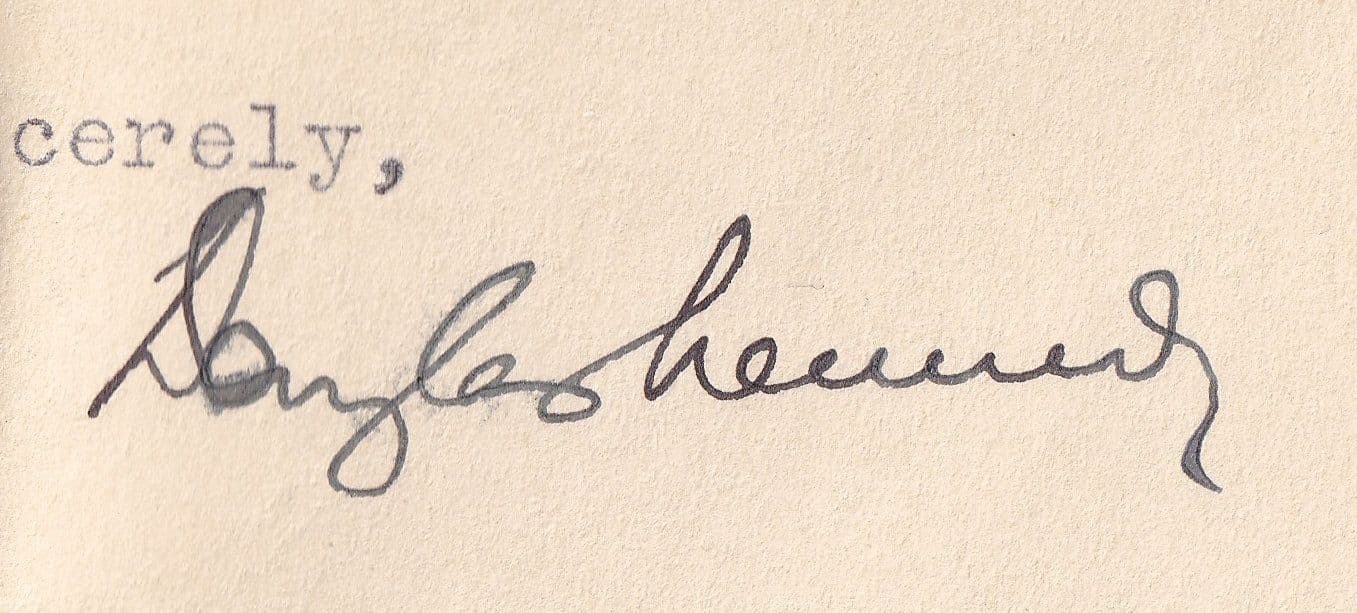 cerely,
Douglas Kennedy